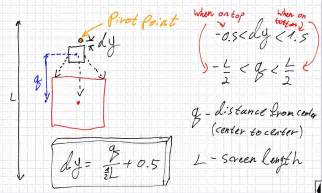 Pivot Point
dy
q
L
dy = q / ½L + 0.5
when on top
when on
-0.5 < dy < 1.5
-L/2 < q < L/2
q - distance from center
(center to center)
L - screen length